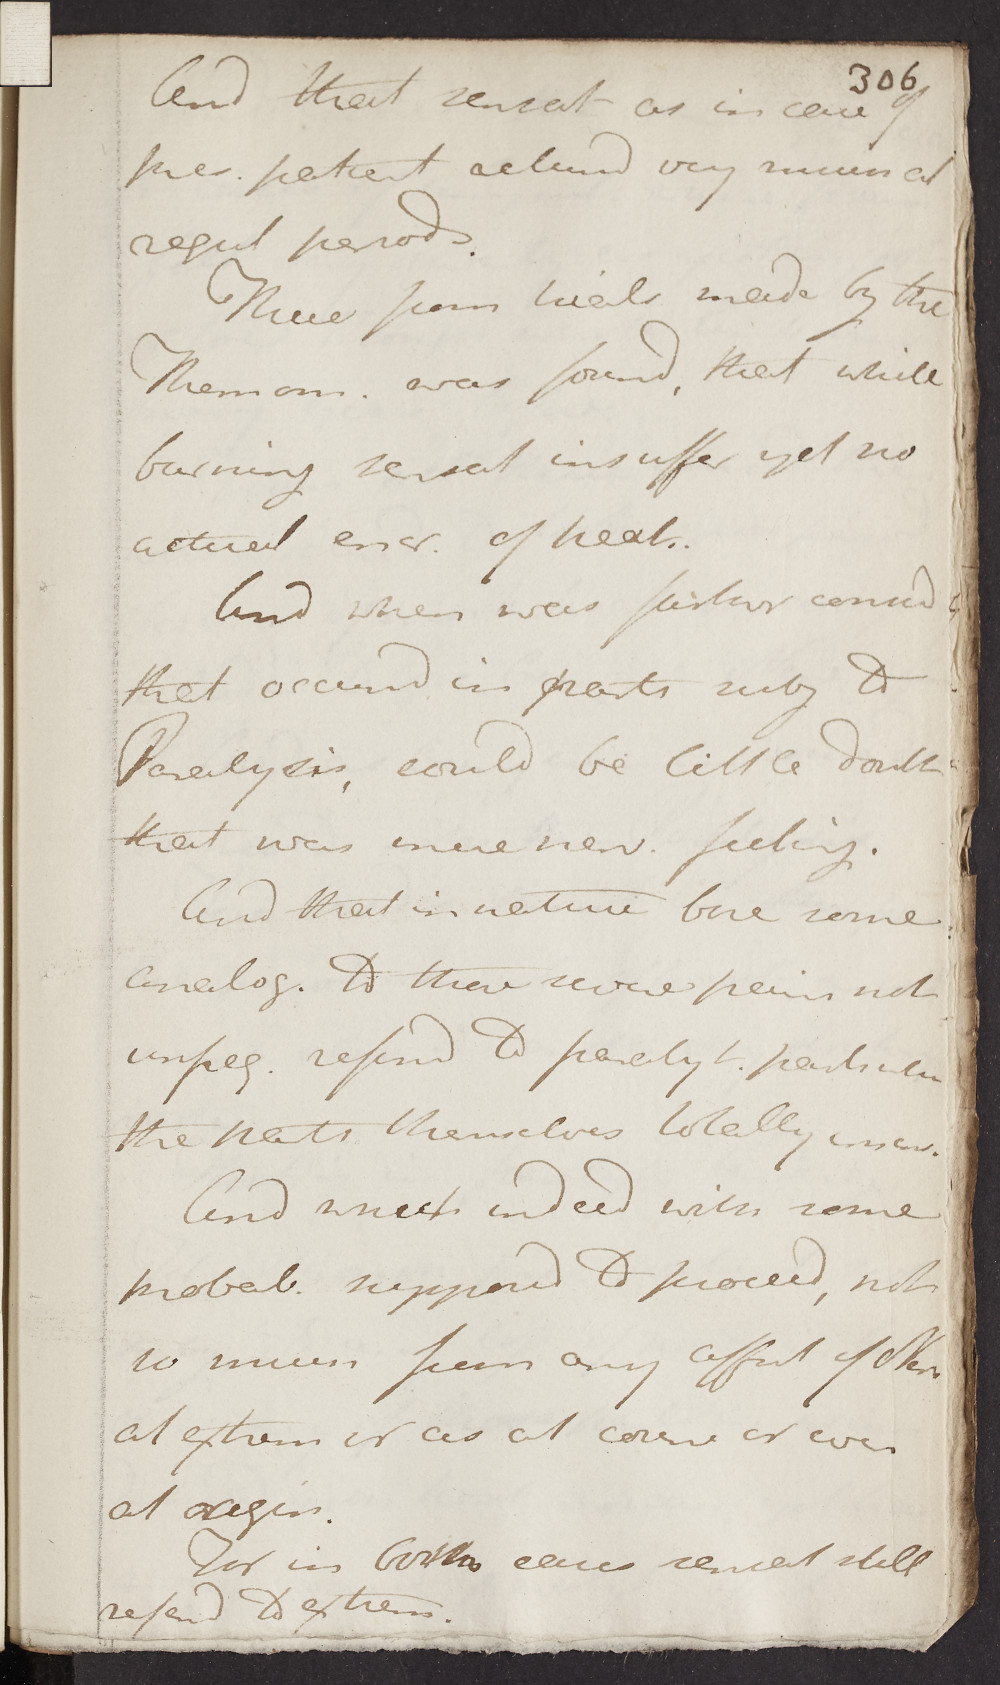 306
And that sensat as in case of
pres. patient return'd very much at
regul periods.
Thus from trials made by the
Thermom. was found, that while
burning sensat insuffer yet no
actual encr. of heat.
And when was further consid
that occurr'd in parts subj to
Paralysis, could be little doubt
that was mere nerv. feeling.
And that in nature bore some
analog. to those severe pains not
unfreq. referr'd to paralyt. parts when
the parts themselves totally insen.
And which indeed with some
probab. suppos'd to proceed, not
so much from any affect of Nerv
at extrem or as at course or even
at origin.
For in both cases sensat still
referr'd to extrem.